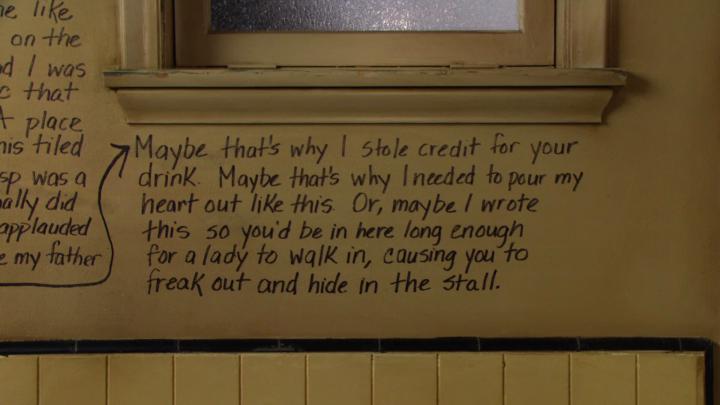 ne like
on the
d I was
c that
A place
his tiled
sp was a
nally did
applauded
e my father
Maybe that's why I stole credit for your
drink. Maybe that's why I needed to pour my
heart out like this. Or, maybe I wrote
this so you'd be in here long enough
for a lady to walk in, causing you to
freak out and hide in the stall.